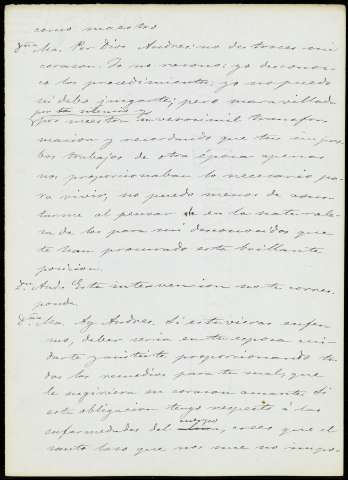 como nuestro.
Dña Ma. Por Dios Andres: no destroces mi
corazon. Yo no razono: yo desconoz
co los procedimientos, yo no puedo
ni debo juzgarte; pero maravillada
por tu talento y
por nuestra inverosimil transfor
macion y recordando que tus impro
bos trabajos de otra época apenas
nos proporcionaban lo necesario pa
ra vivir, no puedo menos de asus
tarme al pensar en la naturale
za de los para mi desconocidos que
te han procurado esta brillante
posicion.
Dn. And. Esta intervencion no te corres
ponde.
Dña Ma. Ay Andres. Si estuvieras enfer
mo, deber seria en tu esposa cui
darte y asistirte, proporcionando to
dos los remedios para tu mal, que
le sugiriera su corazon amante. Si
esta obligacion tengo respecto á las
cuerpo
enfermedades del crees que el
santo lazo que nos une no impo-